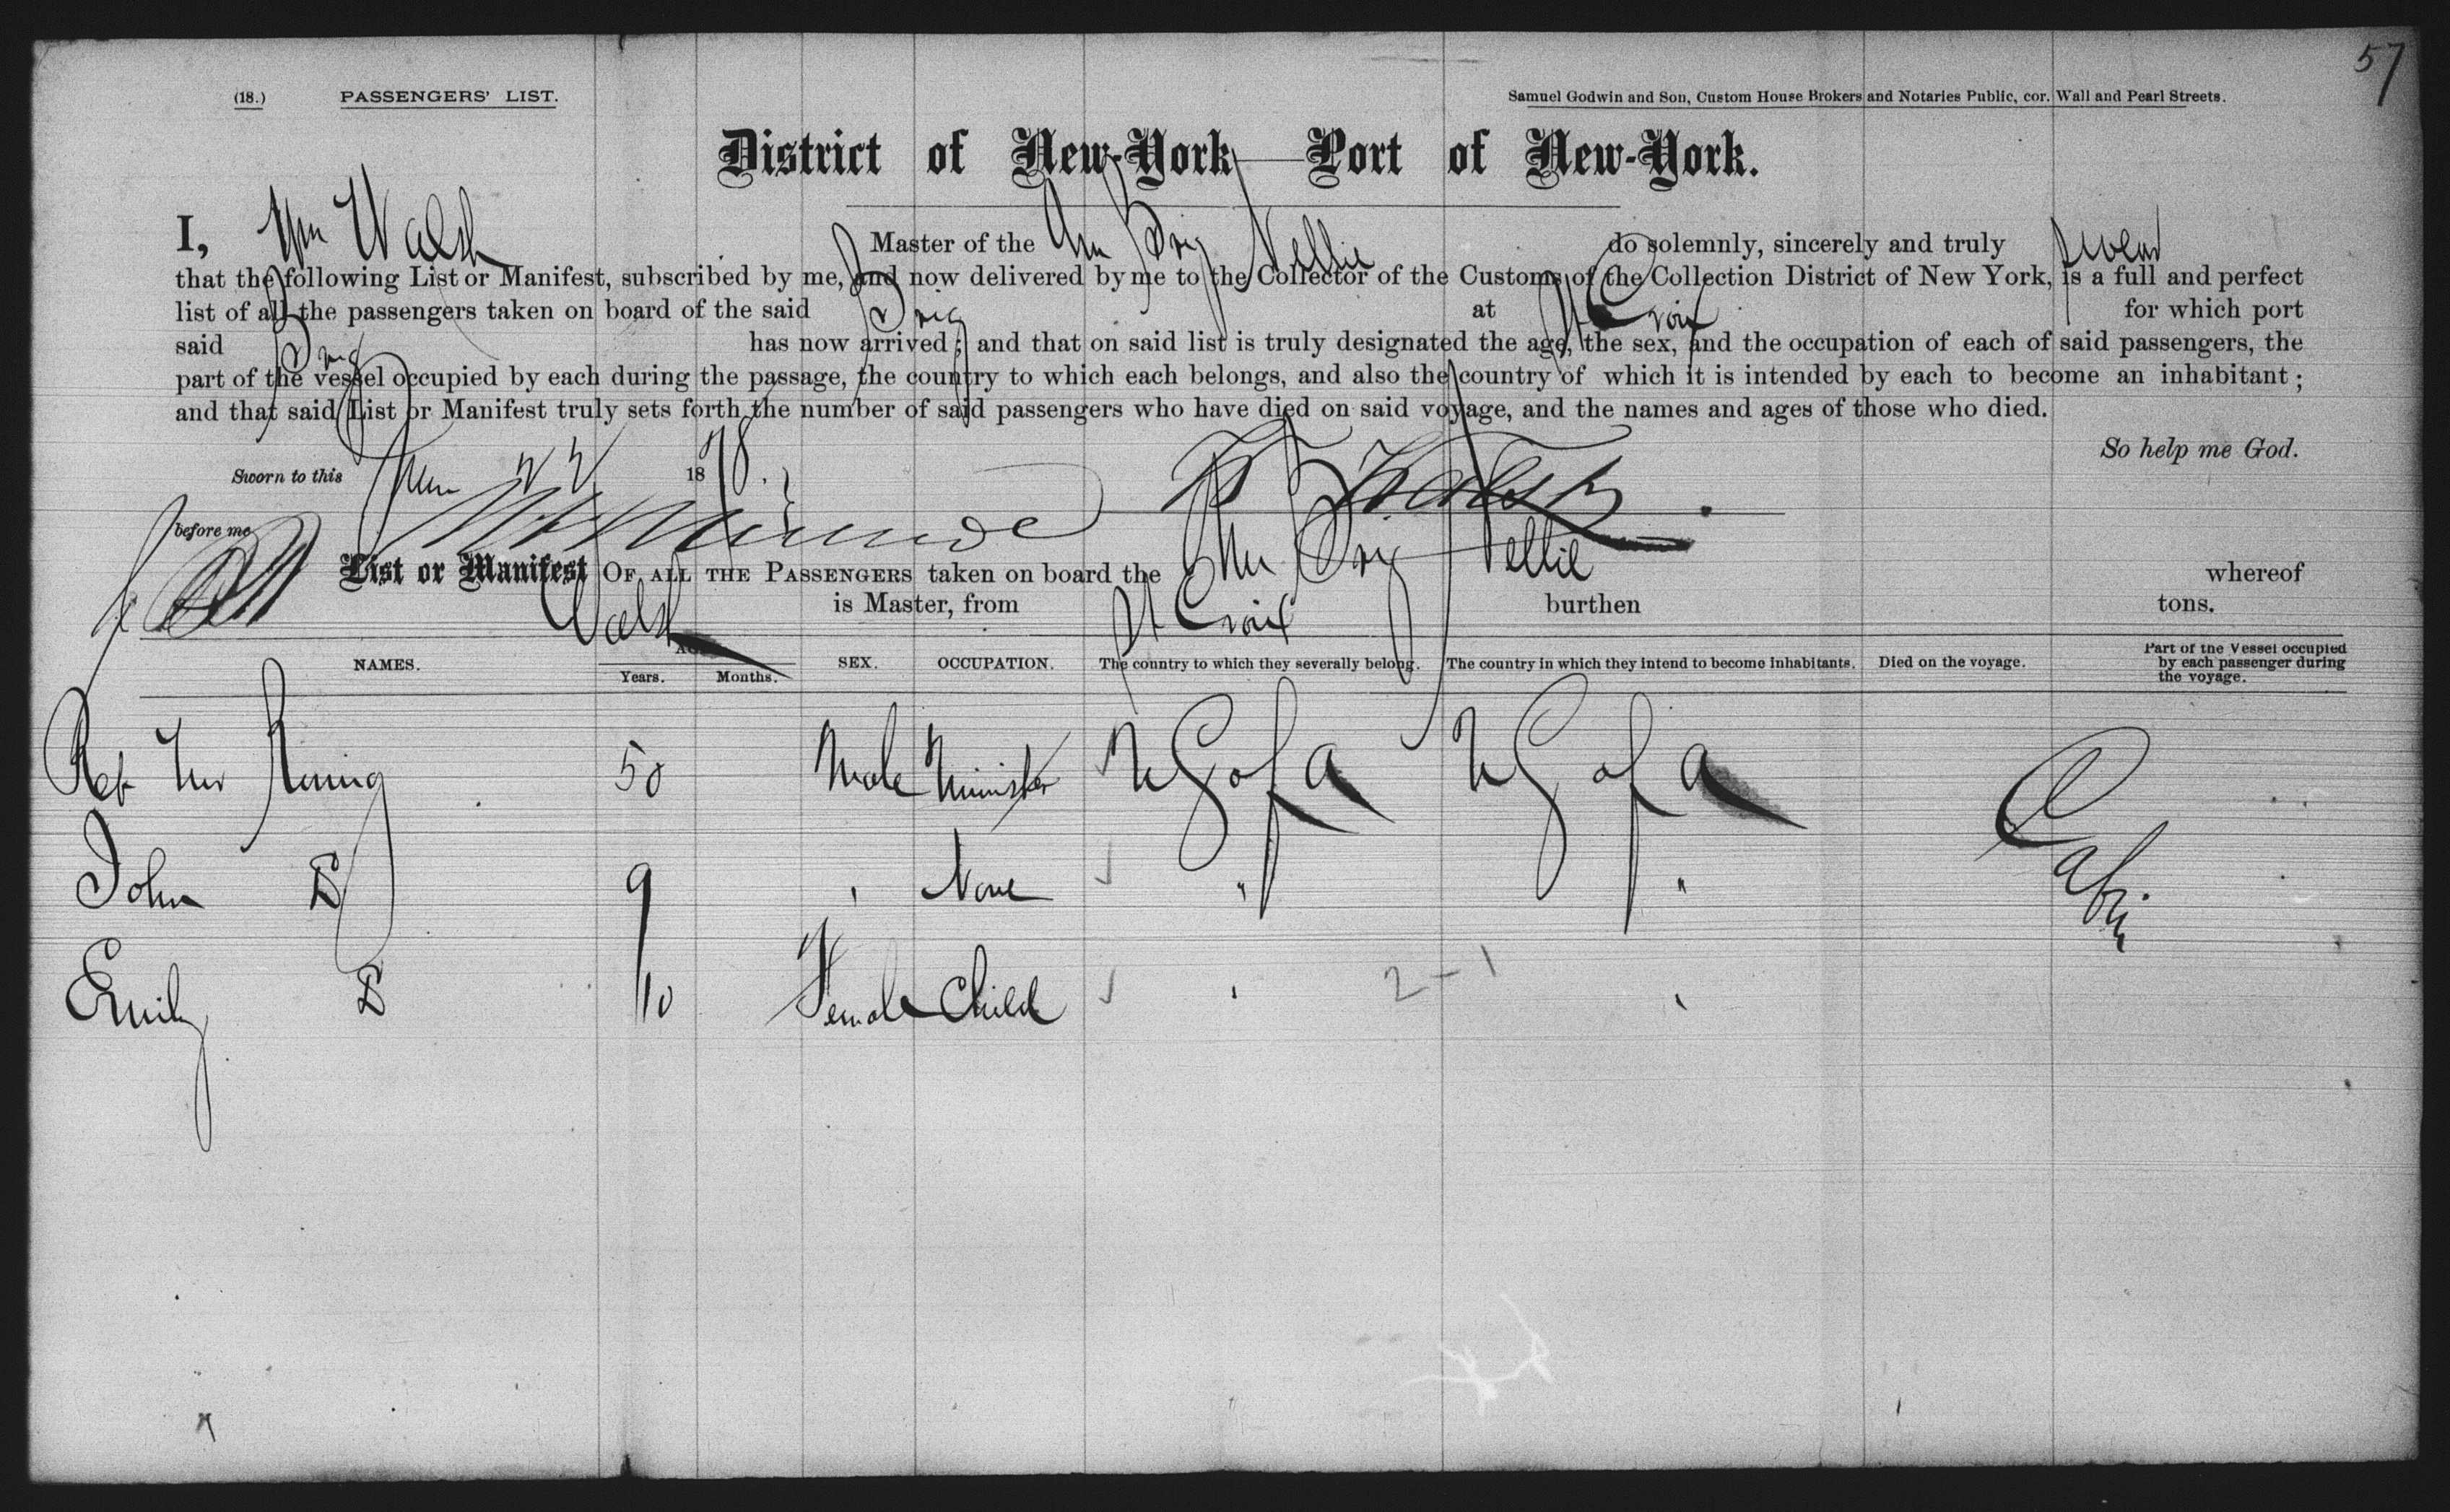 57
(18.) PASSENGERS' LIST. Samuel Godwin and Son, Custom House Brokers and Notaries Public, cor. Wall and Pearl Streets.
District of New-York—Port of New-York.
I, Wm Walsh Master of the Am Brig Nellie do solemnly, sincerely and truly swear
that the following List or Manifest, subscribed by me, and now delivered by me to the Collector of the Customs of the Collection District of New York, is a full and perfect
list of all the passengers taken on board of the said Brig at St Croix for which port
said Brig has now arrived; and that on said list is truly designated the age, the sex, and the occupation of each of said passengers, the
part of the vessel occupied by each during the passage, the country to which each belongs, and also the country of which it is intended by each to become an inhabitant;
and that said List or Manifest truly sets forth the number of said passengers who have died on said voyage, and the names and ages of those who died.
So help me God.
Sworn to this 22 1878. W Walsh
before me
List or Manifest OF ALL THE PASSENGERS taken on board the Am Brig Nellie whereof
Walsh is Master, from St Croix burthen tons.
NAMES. AGE. Years. Months. SEX. OCCUPATION. The country to which they severally belong. The country in which they intend to become inhabitants. Died on the voyage. Part of the Vessel occupied by each passenger during the voyage.
50 Male Minister U S of A U S of A Cabin
John B 9 " None " "
Emily B 10 Female Child " 2-1 "